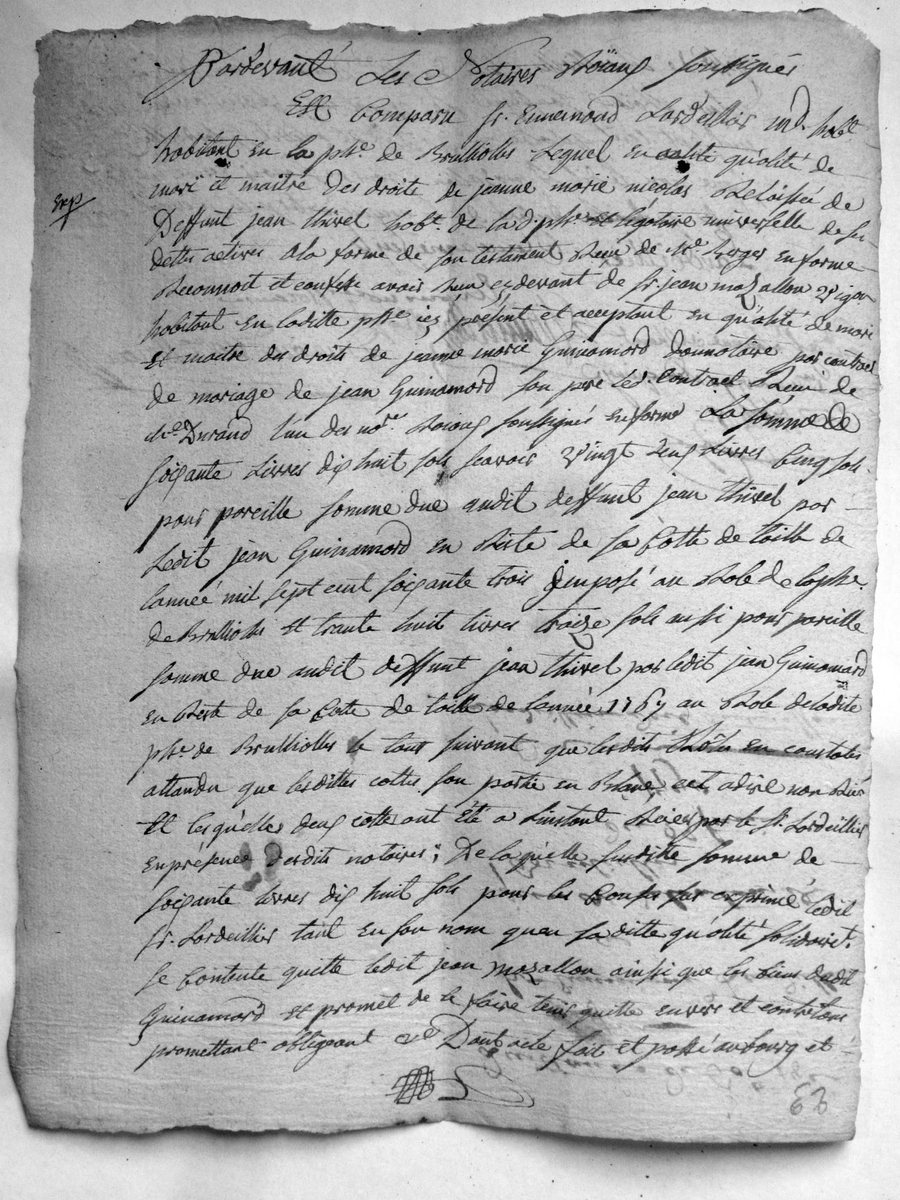 Pardevant Les Notaires Roïaux soussignés
Est Comparu sr. Ennemond Lardellier md. habt
habitant en la psse. de Brullioles Lequel en qu'alité de
mari et maitre des droits de jeanne marie nicolas Relaissée de
Deffunt jean thivel habt. de lad. psse. et légataire universelle de ses
dettes actives ala forme de son testament Receu de Me. Berger en forme
Reconnoit et confesse avoir Reçu cy devant de sr. jean mazallon Vigon
habitant En laditte psse icy présent et acceptant en qu'alité de mari
et maitre des droits de jeanne marie Guinamard donnataire par contract
de mariage de jean Guinamard son pere led. Contract Receu de
Me. Durand l'un des nores. Roiaux soussignés en forme La somme de
soixante Livres dix huit sols scavoir Vingt deux Livres Cinq sols
pour pareille somme due audit deffunt jean thivel par
Ledit jean Guinamard en Reste de sa Cotte de taille de
l'année mil sept cent soixante trois jmposé au Role de la psse.
de Brullioles Et trante huit livres traize sols aussi pour pareille
somme due audit deffunt jean thivel par ledit jean Guinamard
en Reste de sa Cotte de taille de l'année 1767 au Role deladite
psse. de Brullioles le tout suivant que lesdits Rôles en constates
attandu que lesdittes cottes son portée en Blanc cet adire non Rier
Et lesqu'elles deux cottes ont été a l'instant Raiés par le sr. Lardellier
en présence desdits notaires; De laqu'elle susditte somme de
soixante livres dix huit sols pour les Causes sus exprimé ledit
sr. Lardellier tant en son nom qu'en sa ditte qu'alité solidairt.
se Contente quitte ledit jean mazallon ainsi que les biens dudit
Guinamard et promet de le faire tenir quitte envers et contre tous
promettant obligeant &c Dont acte fait et passé au bourg et
Exp
63